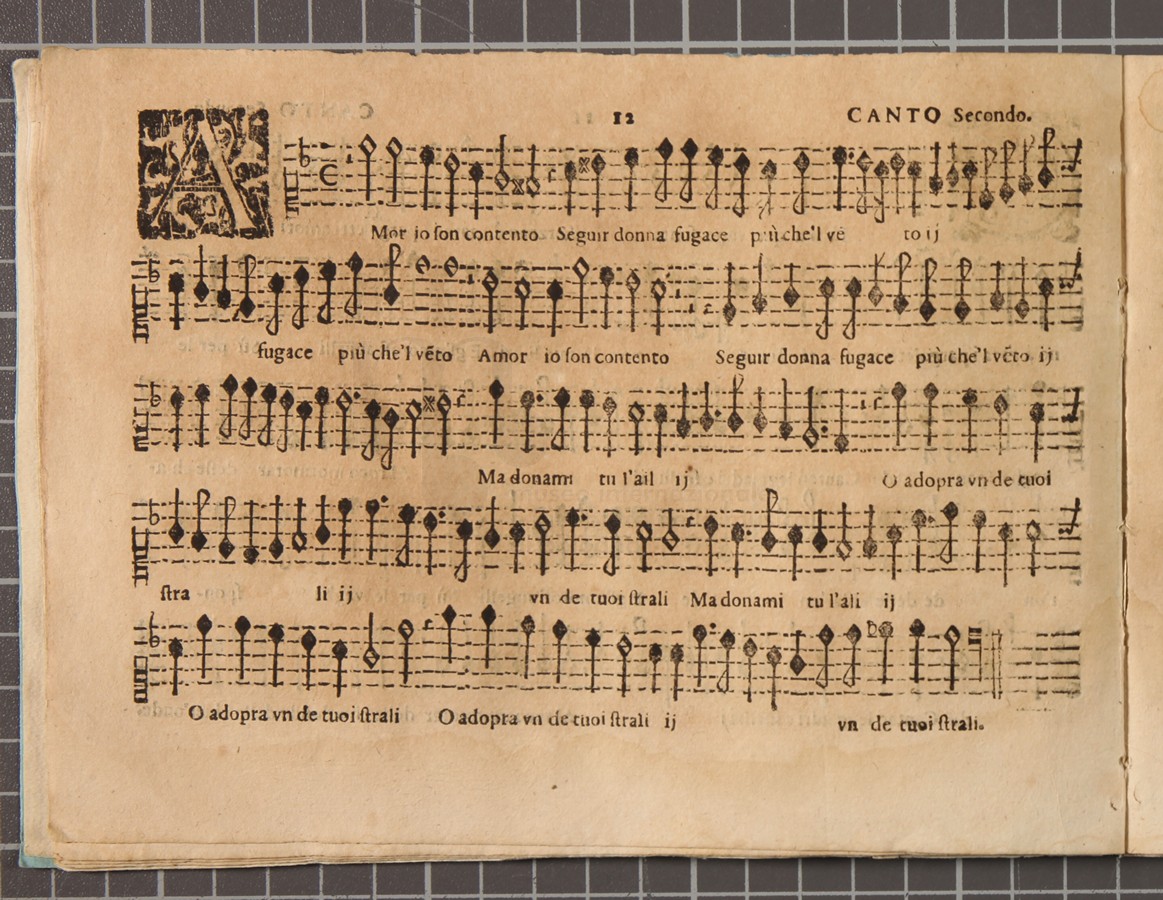 12 CANTO Secondo.
A
Mor io son contento Seguir donna fugace più che'l vē to ij
fugace più che'l vēto Amor io son contento Seguir donna fugace più che'l vēto ij
Ma donami tu l'ail ij O adopra vn de tuoi
stra li ij vn de tuoi strali Ma donami tu l'ali ij
O adopra vn de tuoi strali O adopra vn de tuoi strali ij vn de tuoi strali.